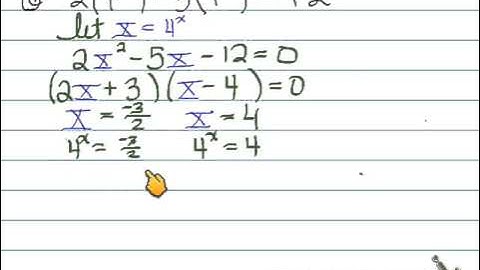 let x = 4ˣ
2x² - 5x - 12 = 0
(2x + 3)(x - 4) = 0
x = -3/2 x = 4
4ˣ = -3/2 4ˣ = 4